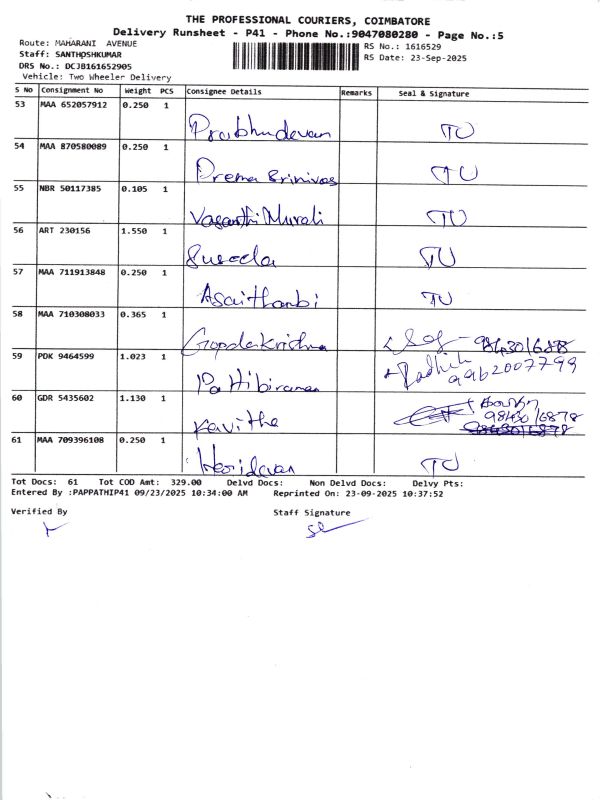 THE PROFESSIONAL COURIERS, COIMBATORE
Delivery Runsheet - P41 - Phone No.:9047080280 - Page No.:5
Route: MAHARANI AVENUE
RS No.: 1616529
Staff: SANTHOSHKUMAR
RS Date: 23-Sep-2025
DRS No.: DCJB161652905
Vehicle: Two Wheeler Delivery
S No Consignment No Weight PCS Consignee Details Remarks Seal & Signature
53 MAA 652057912 0.250 1
Prabhudevan TU
54 MAA 870580089 0.250 1
Prema Srinivas TU
55 NBR 50117385 0.105 1
Vasanthi Murali TU
56 ART 230156 1.550 1
Suseela TU
57 MAA 711913848 0.250 1
Asaithambi TU
58 MAA 710308033 0.365 1
Gopalakrishna 9843016878
59 PDK 9464599 1.023 1
Pattibiraman 9962007799
60 GDR 5435602 1.130 1
Kavitha 9843016878
61 MAA 709396108 0.250 1
Haridevan TU
Tot Docs: 61 Tot COD Amt: 329.00 Delvd Docs: Non Delvd Docs: Delvy Pts:
Entered By :PAPPATHIP41 09/23/2025 10:34:00 AM Reprinted On: 23-09-2025 10:37:52
Verified By Staff Signature